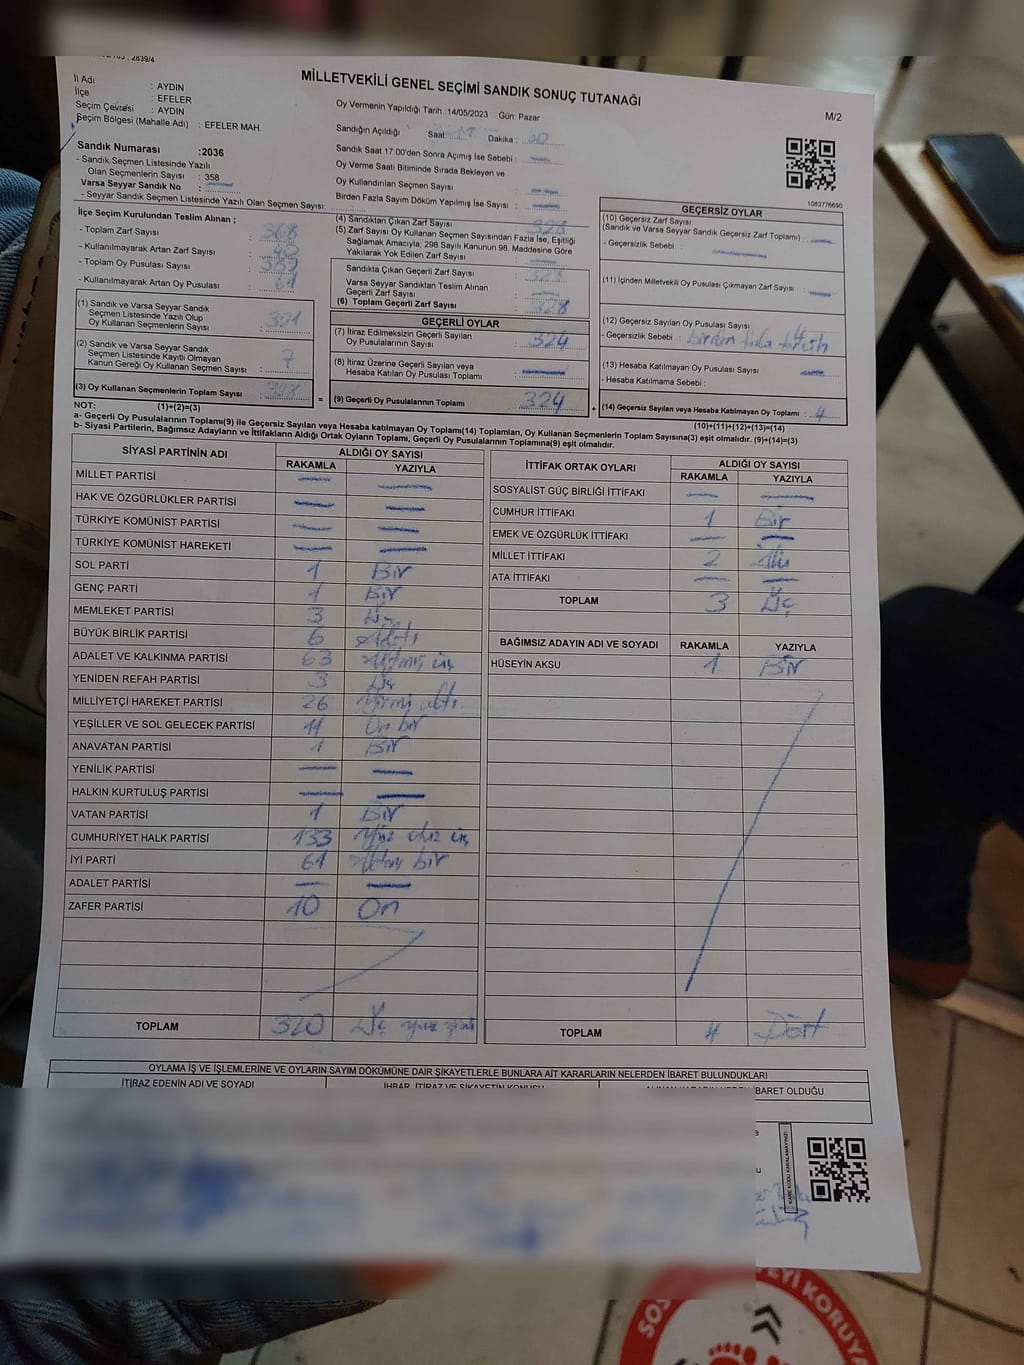 2839/4
MİLLETVEKİLİ GENEL SEÇİMİ SANDIK SONUÇ TUTANAĞI
M/2
İl Adı : AYDIN
İlçe : EFELER
Seçim Çevresi : AYDIN
Seçim Bölgesi (Mahalle Adı) : EFELER MAH.
Oy Vermenin Yapıldığı Tarih :14/05/2023 Gün: Pazar
Sandığın Açıldığı Saat: 17 Dakika : 00
Sandık Saat 17:00'den Sonra Açılmış İse Sebebi : —
Oy Verme Saati Bitiminde Sırada Bekleyen ve
Oy Kullandırılan Seçmen Sayısı : —
Birden Fazla Sayım Döküm Yapılmış İse Sayısı : —
Sandık Numarası :2036
- Sandık Seçmen Listesinde Yazılı
Olan Seçmenlerin Sayısı : 358
Varsa Seyyar Sandık No : —
- Seyyar Sandık Seçmen Listesinde Yazılı Olan Seçmen Sayısı:
1083776690
İlçe Seçim Kurulundan Teslim Alınan ;
- Toplam Zarf Sayısı : 368
- Kullanılmayarak Artan Zarf Sayısı :
- Toplam Oy Pusulası Sayısı :
- Kullanılmayarak Artan Oy Pusulası : 61
(1) Sandık ve Varsa Seyyar Sandık
Seçmen Listesinde Yazılı Olup
Oy Kullanan Seçmenlerin Sayısı : 321
(2) Sandık ve Varsa Seyyar Sandık
Seçmen Listesinde Kayıtlı Olmayan
Kanun Gereği Oy Kullanan Seçmen Sayısı : 7
(3) Oy Kullanan Seçmenlerin Toplam Sayısı : 328
(1)+(2)=(3)
(4) Sandıktan Çıkan Zarf Sayısı : 328
(5) Zarf Sayısı Oy Kullanan Seçmen Sayısından Fazla İse, Eşitliği
Sağlamak Amacıyla; 298 Sayılı Kanunun 98. Maddesine Göre
Yakılarak Yok Edilen Zarf Sayısı : —
Sandıkta Çıkan Geçerli Zarf Sayısı : 328
Varsa Seyyar Sandıktan Teslim Alınan
Geçerli Zarf Sayısı : —
(6) Toplam Geçerli Zarf Sayısı : 328
GEÇERLİ OYLAR
(7) İtiraz Edilmeksizin Geçerli Sayılan
Oy Pusulalarının Sayısı : 324
(8) İtiraz Üzerine Geçerli Sayılan veya
Hesaba Katılan Oy Pusulası Toplamı : —
= (9) Geçerli Oy Pusulalarının Toplamı : 324
GEÇERSİZ OYLAR
(10) Geçersiz Zarf Sayısı
(Sandık ve Varsa Seyyar Sandık Geçersiz Zarf Toplamı) : —
- Geçersizlik Sebebi : —
(11) İçinden Milletvekili Oy Pusulası Çıkmayan Zarf Sayısı : —
(12) Geçersiz Sayılan Oy Pusulası Sayısı : 4
- Geçersizlik Sebebi : Birden fazla tercih
(13) Hesaba Katılmayan Oy Pusulası Sayısı : —
- Hesaba Katılmama Sebebi :
+ (14) Geçersiz Sayılan veya Hesaba Katılmayan Oy Toplamı : 4
(10)+(11)+(12)+(13)=(14)
NOT:
a- Geçerli Oy Pusulaların Toplamı(9) ile Geçersiz Sayılan veya Hesaba Katılmayan Oy Toplamı(14) Toplamları, Oy Kullanan Seçmenlerin Toplam Sayısına(3) eşit olmalıdır. (9)+(14)=(3)
b- Siyasi Partilerin, Bağımsız Adayların ve İttifakların Aldığı Ortak Oyların Toplamı, Geçerli Oy Pusulalarının Toplamına(9) eşit olmalıdır.
SİYASİ PARTİNİN ADI ALDIĞI OY SAYISI
RAKAMLA YAZIYLA
MİLLET PARTİSİ — —
HAK VE ÖZGÜRLÜKLER PARTİSİ — —
TÜRKİYE KOMÜNİST PARTİSİ — —
TÜRKİYE KOMÜNİST HAREKETİ — —
SOL PARTİ 1 Bir
GENÇ PARTİ 1 Bir
MEMLEKET PARTİSİ 3 Üç
BÜYÜK BİRLİK PARTİSİ 6 Altı
ADALET VE KALKINMA PARTİSİ 63 Altmış üç
YENİDEN REFAH PARTİSİ 3 Üç
MİLLİYETÇİ HAREKET PARTİSİ 26 Yirmi altı
YEŞİLLER VE SOL GELECEK PARTİSİ 11 On bir
ANAVATAN PARTİSİ 1 Bir
YENİLİK PARTİSİ — —
HALKIN KURTULUŞ PARTİSİ — —
VATAN PARTİSİ 1 Bir
CUMHURİYET HALK PARTİSİ 133 Yüz otuz üç
İYİ PARTİ 61 Altmış bir
ADALET PARTİSİ — —
ZAFER PARTİSİ 10 On
TOPLAM 320 Üç yüz yirmi
İTTİFAK ORTAK OYLARI ALDIĞI OY SAYISI
RAKAMLA YAZIYLA
SOSYALİST GÜÇ BİRLİĞİ İTTİFAKI — —
CUMHUR İTTİFAKI 1 Bir
EMEK VE ÖZGÜRLÜK İTTİFAKI — —
MİLLET İTTİFAKI 2 İki
ATA İTTİFAKI — —
TOPLAM 3 Üç
BAĞIMSIZ ADAYIN ADI VE SOYADI RAKAMLA YAZIYLA
HÜSEYİN AKSU 1 Bir
TOPLAM 4 Dört
OYLAMA İŞ VE İŞLEMLERİNE VE OYLARIN SAYIM DÖKÜMÜNE DAİR ŞİKAYETLERLE BUNLARA AİT KARARLARIN NELERDEN İBARET BULUNDUKLARI
İTİRAZ EDENİN ADI VE SOYADI İHBAR, İTİRAZ VE ŞİKAYETİN KONUSU ALINAN KARARIN NEDEN İBARET OLDUĞU
KARE KODU KARALAMAYINIZ!
SOS
EYİ KORUYA